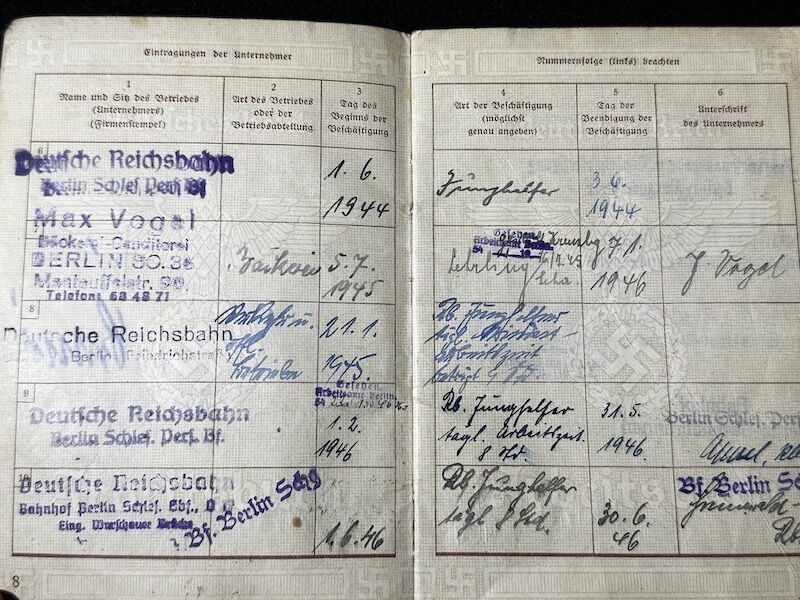 Eintragungen der Unternehmer
1
Name und Sitz des Betriebes
(Unternehmers)
(Firmenstempel)
2
Art des Betriebes
oder der
Betriebsabteilung
3
Tag des
Beginns der
Beschäftigung
6
Deutsche Reichsbahn
Berlin Schles. Pers. Bf
1. 6.
1944
Max Vogel
Bäckerei-Conditorei
BERLIN SO. 36
Manteuffelstr. 90,
Telefon: 63 48 71
Bäckerei
5. 7.
1945
8
Deutsche Reichsbahn
Berlin Friedrichstraße
21. 1.
1945.
9
Deutsche Reichsbahn
Berlin Schles. Pers. Bf.
Gesehen.
Arbeitsamt Berlin
1. 2.
1946
10
Deutsche Reichsbahn
Bahnhof Berlin Schles. Gbf.,
Eing. Warschauer Brücke
Bf. Berlin Schg
1. 6. 46
8
Nummernfolge (links) beachten
4
Art der Beschäftigung
(möglichst
genau angeben)
5
Tag der
Beendigung der
Beschäftigung
6
Unterschrift
des Unternehmers
Junghelfer
3. 6.
1944
Gesehen
Arbeitsamt Berlin
Lehrling
7. 1.
1946
J. Vogel
Rb. Junghelfer
tägl. Mindest-
arbeitszeit
beträgt
Rb. Junghelfer
tägl. Arbeitszeit
8 Std.
31. 5.
1946.
Berlin Schles. Pers
Rb. Junghelfer
tägl 8 Std.
30. 6.
46
Bf. Berlin Sch